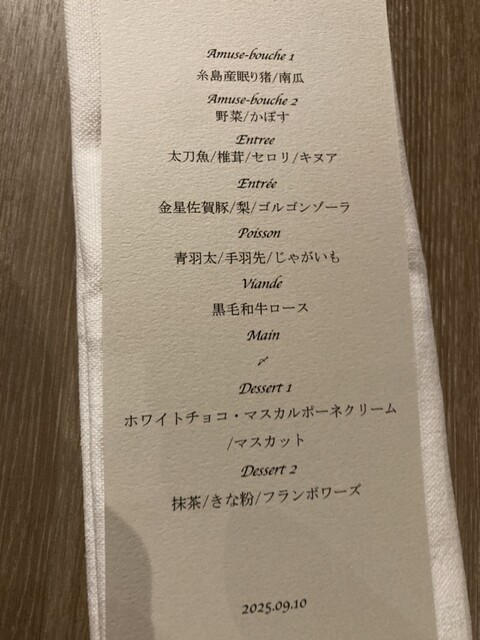 Amuse-bouche 1
糸島産眠り猪/南瓜
Amuse-bouche 2
野菜/かぼす
Entree
太刀魚/椎茸/セロリ/キヌア
Entrée
金星佐賀豚/梨/ゴルゴンゾーラ
Poisson
青羽太/手羽先/じゃがいも
Viande
黒毛和牛ロース
Main
〆
Dessert 1
ホワイトチョコ・マスカルポーネクリーム
/マスカット
Dessert 2
抹茶/きな粉/フランボワーズ
2025.09.10